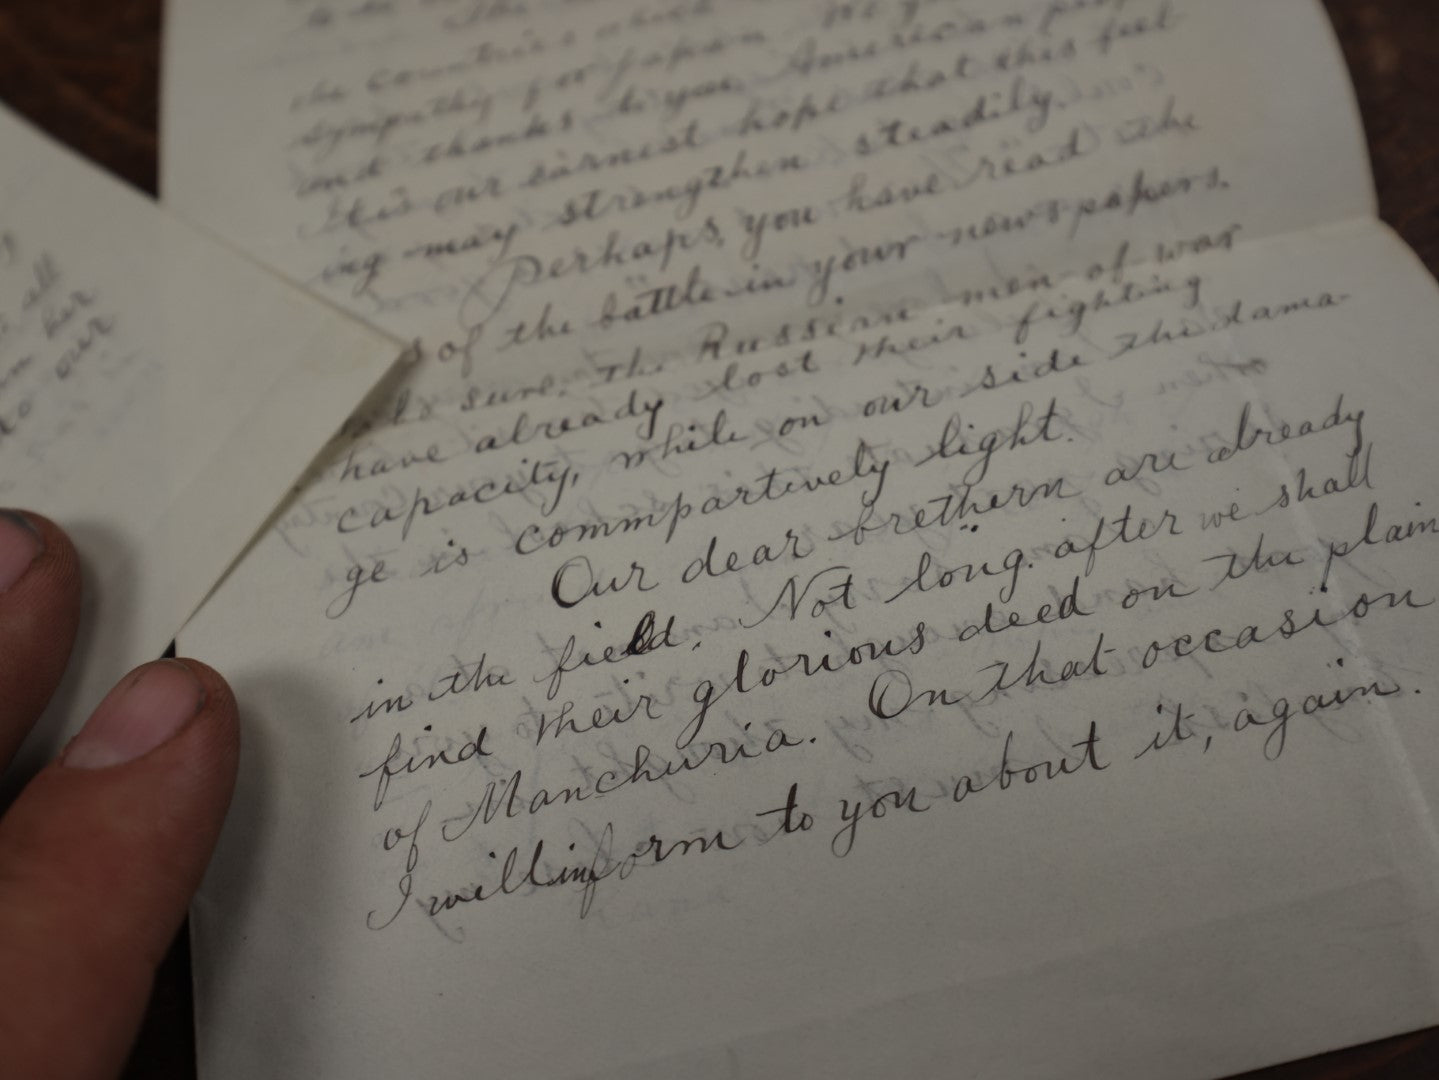 the countries which
sympathy for Japan. We
and thanks to you American
It is our earnest hope that this feel
ing may strengthen steadily.
Perhaps, you have read the
s of the battle in your newspapers.
sure. The Russian men-of-war
have already lost their fighting
capacity, while on our side the dama-
ge is commpartively light.
Our dear brethern are already
in the field. Not long after we shall
find their glorious deed on the plain
of Manchuria. On that occasion
I will inform to you about it, again.
all
her
our